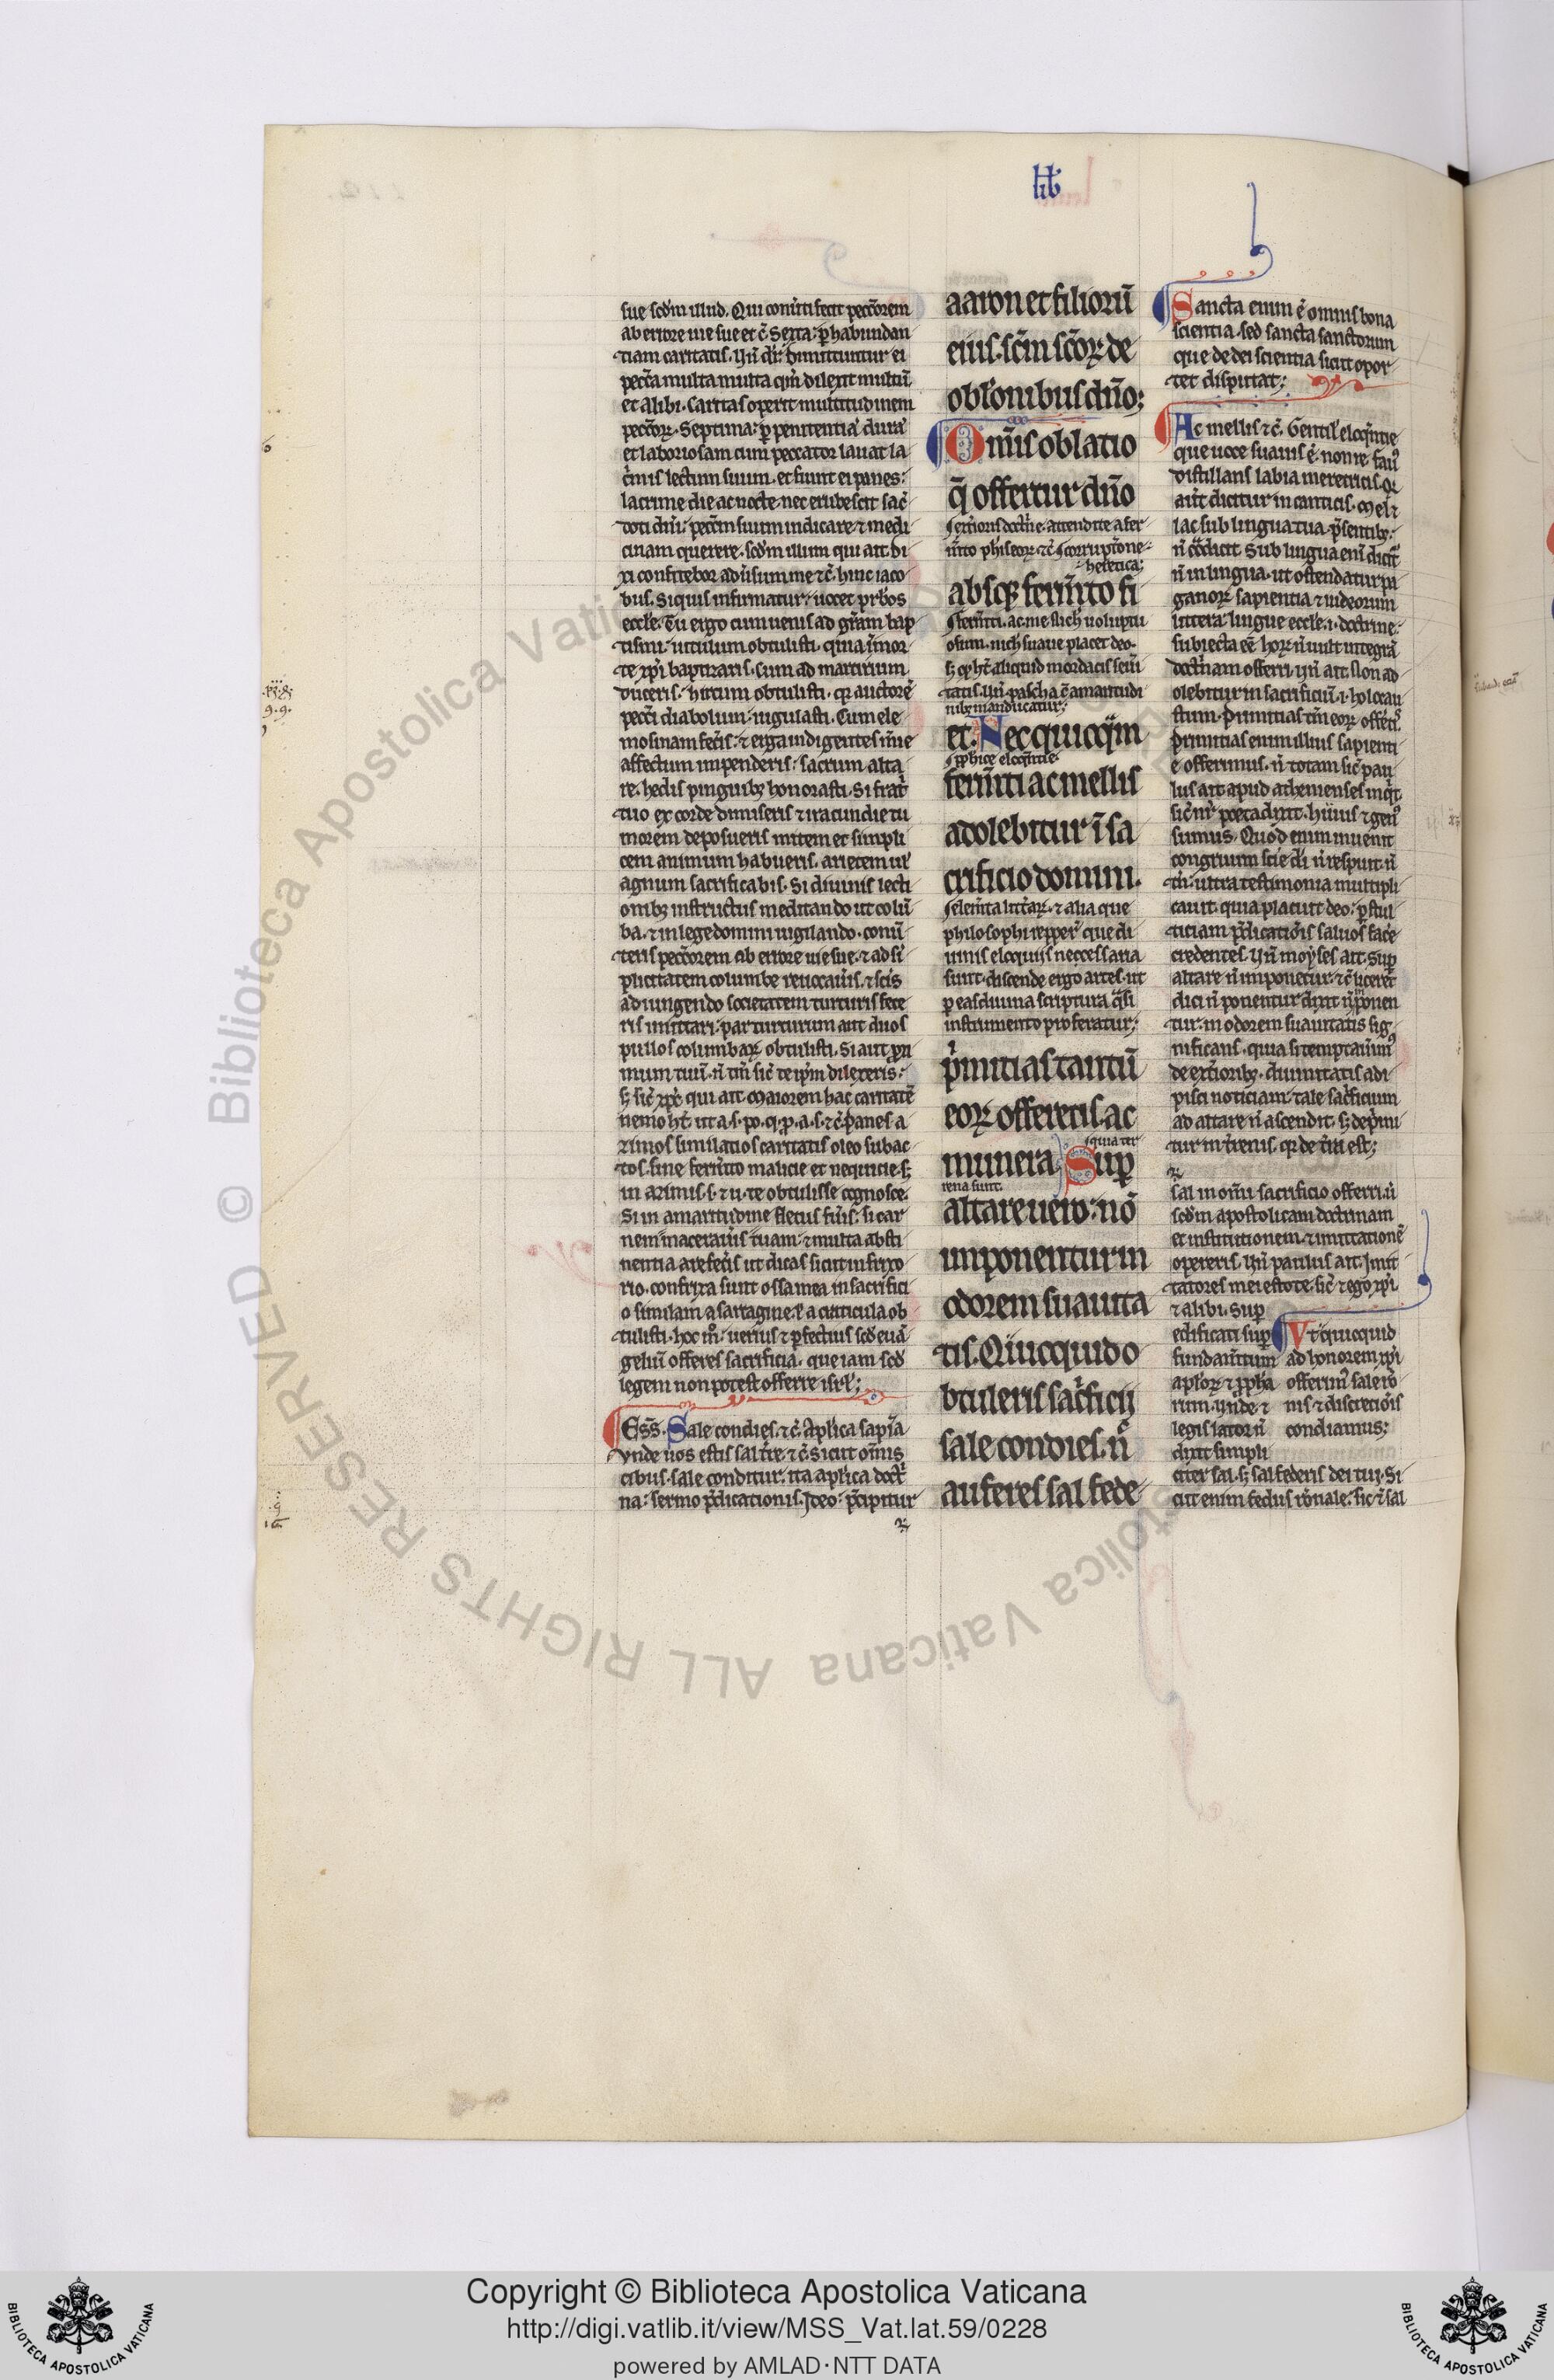 lib'
sue scd'm illud. Qui conu'ti fecit pecc̄orem
ab errore uie sue et c̄. Sexta: p habundan
tiam caritatis. Vn̄ dr̄. Dimittuntur ei
pecc̄a multa
et alibi. Caritas operit multitudinem
pecc̄oꝝ. Septima: p penitentiā durā
et laboriosam cum peccator lauat la
c'mis lectum suum. et fiunt ei panes:
lacrime die ac nocte. nec erubescit sac̄
doti dn̄i: pecc̄m suum indicare ⁊ medi
cinam querere. scd'm illum qui ait. Di
xi confitebor
bus. Siquis infirmatur: uocet prb'os
eccle. Tu ergo cum uenis ad gr̄am bap
tismi: uitulum obtulisti. quia in mor
te xp̄i baptizaris. Cum ad martirium
duceris: hircum obtulisti. qr auctorē
pecc̄i diabolum iugulasti. Cum ele
mosinam fec'is. ⁊ erga indigentes
affectum impenderis: sacrum alta
re. hedis pinguibꝫ honorasti. Si frat'
tuo ex corde dimiseris ⁊ iracundie tu
morem deposueris mitem et simpli
cem animum habueris. arietem ul'
agnum sacrificabis. Si diuinis lecti
onibꝫ instructus meditando ut colū
ba. ⁊ in lege domini uigilando. conu'
teris pecc̄orem ab errore uie sue. ⁊ ad si
plicitatem columbe reuocau'is. ⁊ sc̄is
adiungendo societatem turturis fece
ris imitari: par turturum aut duos
pullos columbaꝝ obtulisti. Si aut pxi
mum tuū. n̄ tm̄ sic̄ te ip̄m dilexeris:
sꝫ sic̄ xp̄c qui ait. Maiorem hac caritatē
nemo ht̄. ut a. s. po. q. p. a. s. ⁊c̄. panes a
zimos similatios caritatis oleo subac
tos. sine ferm̄to malicie et nequicie. sꝫ
in azimis. s. ⁊ u. te obtulisse cognosce.
Si in amaritudine fletus fu'is: si car
nem macerau'is tuam. ⁊ multa absti
nentia arefec'is ut dicas sicut in frixo
rio. confrixa sunt ossa mea in sacrifici
o similam a sartagine. ł a craticula ob
tulisti. hoc m̊. uerius ⁊ pfectius scd' euā
geliū offeres sacrificia. que iam scd'
legem non potest offerre isrl';
Ess̄. Sale condies. ⁊c̄. Apl'ica sapīa
vnde uos estis sal tr̄e. ⁊c̄. Sicut om̄is
cibus. sale conditur. ita apl'ica doct'
na: sermo p̄dicationis. Ideo: p̄cipitur
aaron et filiorū
eius. sc̄m sc̄oꝝ de
obl'onibus dn̄o;
Omīs oblatio
q̄ offertur dn̄o
attendite a fer
m̄to
heretica;
absqꝫ ferm̄to fi
ferm̄ti. ac mellis
osum. nich' suaue placet deo.
sꝫ qd ht̄ aliquid mordacis seu'i
tatis. Vn̄. pascha c̄ amaritudi
nibꝫ manducatur;
et. Nec quicq̄m
ferm̄ti ac mellis
adolebitur ī sa
crificio domini.
elem̄ta litt'aꝝ. ⁊ alia que
philosophi repper'. que di
uinis eloquiis neccessaria
sunt. discende ergo artes. ut
p eas diuina scriptura q̄si
instrumento proferatur;
p'mitias tantū
eoꝝ offeretis. ac
quia ter
munera. Sup
rena sunt.
altare uero: nō
imponentur in
odorem suauita
tis. Quicquid o
btuleris sac'ficij
sale condies. n̄
auferes sal fede
Sancta enim ē omnis bona
scientia. sed sancta sanctorum
que de dei scientia sicut opor
tet disputat;
Ac mellis ⁊c̄. Gentil' eloq̄ntie
que uoce suauis ē. nomīe. fau'
distillans labia meretricis. Qd
aut dicitur in canticis. Mel ⁊
lac sub lingua tua. p̄sentibꝫ
n̄ cōdicit. Sub lingua enī dicit'
n̄ in lingua. ut ostendatur pa
ganoꝝ sapientia ⁊ iudeorum
littera: lingue eccle. i. doctrine:
subiecta ee. hoꝝ n̄ uult integrā
doct'nam offerri. Vn̄ ait. Non ad
olebitur in sacrificiū. i. holocau
stum. Primitias tm̄ eoꝝ offert'.
Primitias enim illius sapienti
e offerimus. n̄ totam sic̄ pau
lus ait apud athenienses inq't.
sic̄ nr̄ poeta dixit. huius ⁊ gen'
sumus. Quod enim inuenit
congruum scīe dei n̄ respuit. n̄
tn̄. ultra testimonia multipli
cauit. quia placuit deo: p stul
ticiam p̄dicatiōis saluos face
credentes. Vn̄ moyses ait. Sup
altare n̄ imponetur. ⁊c̄. licet
dici n̄ ponentur. dixit n̄ inponen
tur. in odorem suauitatis sig
nificans. quia si temptau'im'
de ext'ioribꝫ. diuinitatis adi
pisci noticiam: tale sac'ficium
ad altare n̄ ascendit. sꝫ dep'mi
tur in t'renis. qr de t'ra est;
sal in om̄i sacrificio offerri. n̄
scd'm apostolicam doctrinam
et institutionem. ⁊ imitationē
opereris. Vn̄ paulus ait. Imit
tatores mei estote. sic̄ ⁊ ego xp̄i
⁊ alibi. Sup
edificati sup
fundam̄tum
apl'oꝝ ⁊ pph'a
rum. vn̄de ⁊
legis lator n̄
dixit simpli
citer sal. sꝫ sal federis dei tui. Si
cut enim fedus
Vt quicquid
ad honorem xp̄i
offerim' sale rō
nis ⁊ discreciōis
condiamus;
© Biblioteca Apostolica Vaticana ALL RIGHTS RESERVED
Copyright © Biblioteca Apostolica Vaticana
http://digi.vatlib.it/view/MSS_Vat.lat.59/0228
powered by AMLAD·NTT DATA
BIBLIOTECA APOSTOLICA VATICANA
BIBLIOTECA APOSTOLICA VATICANA